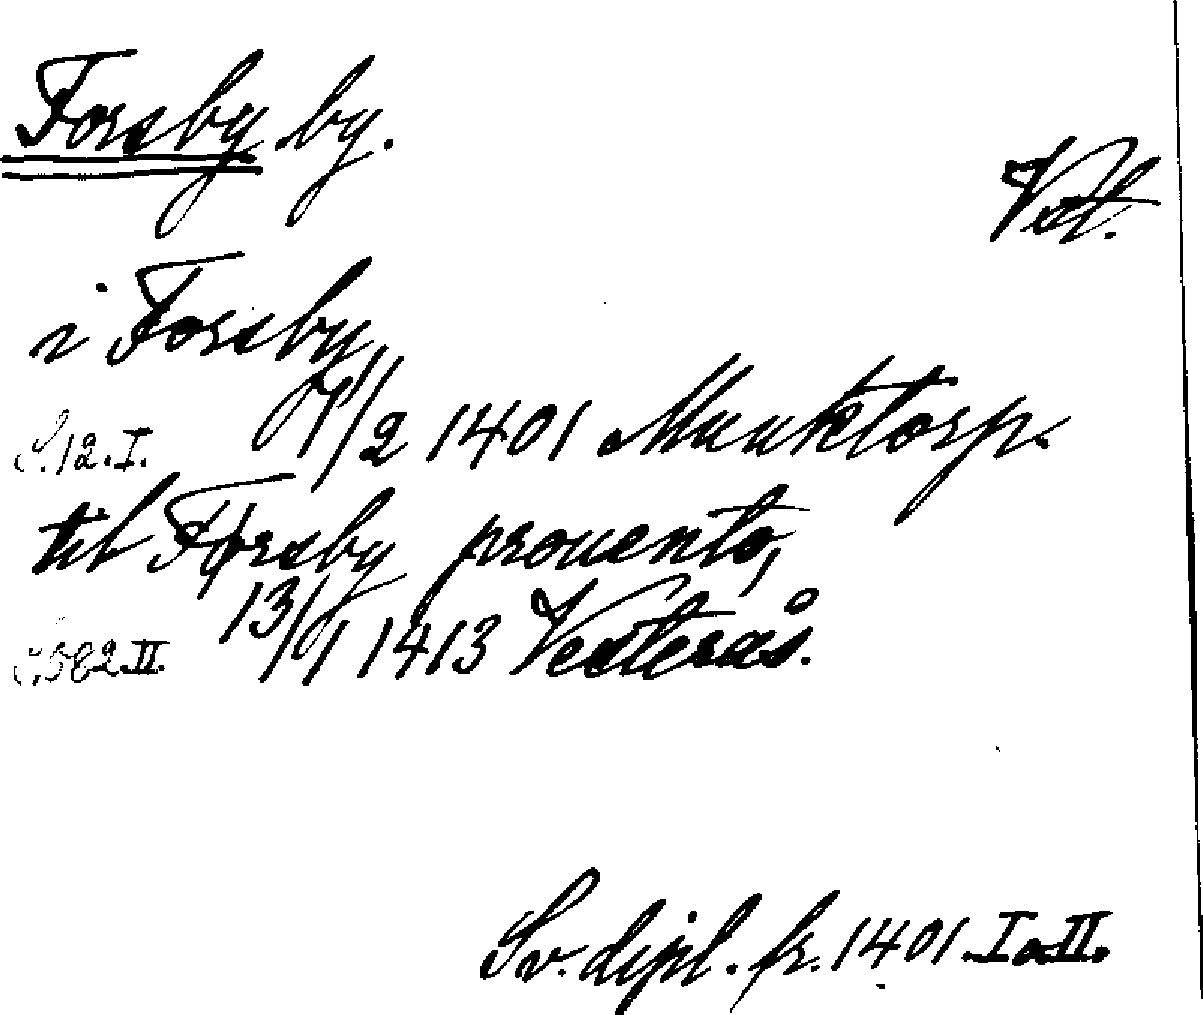 Forsby by.
Vstl.
i Forsby,
S. 12. I. 7/2 1401 Munktorp.
til Førsby prouento,
S. 582 II. 13/1 1413 Vesterås.
Sv. dipl. fr. 1401. I o. II.